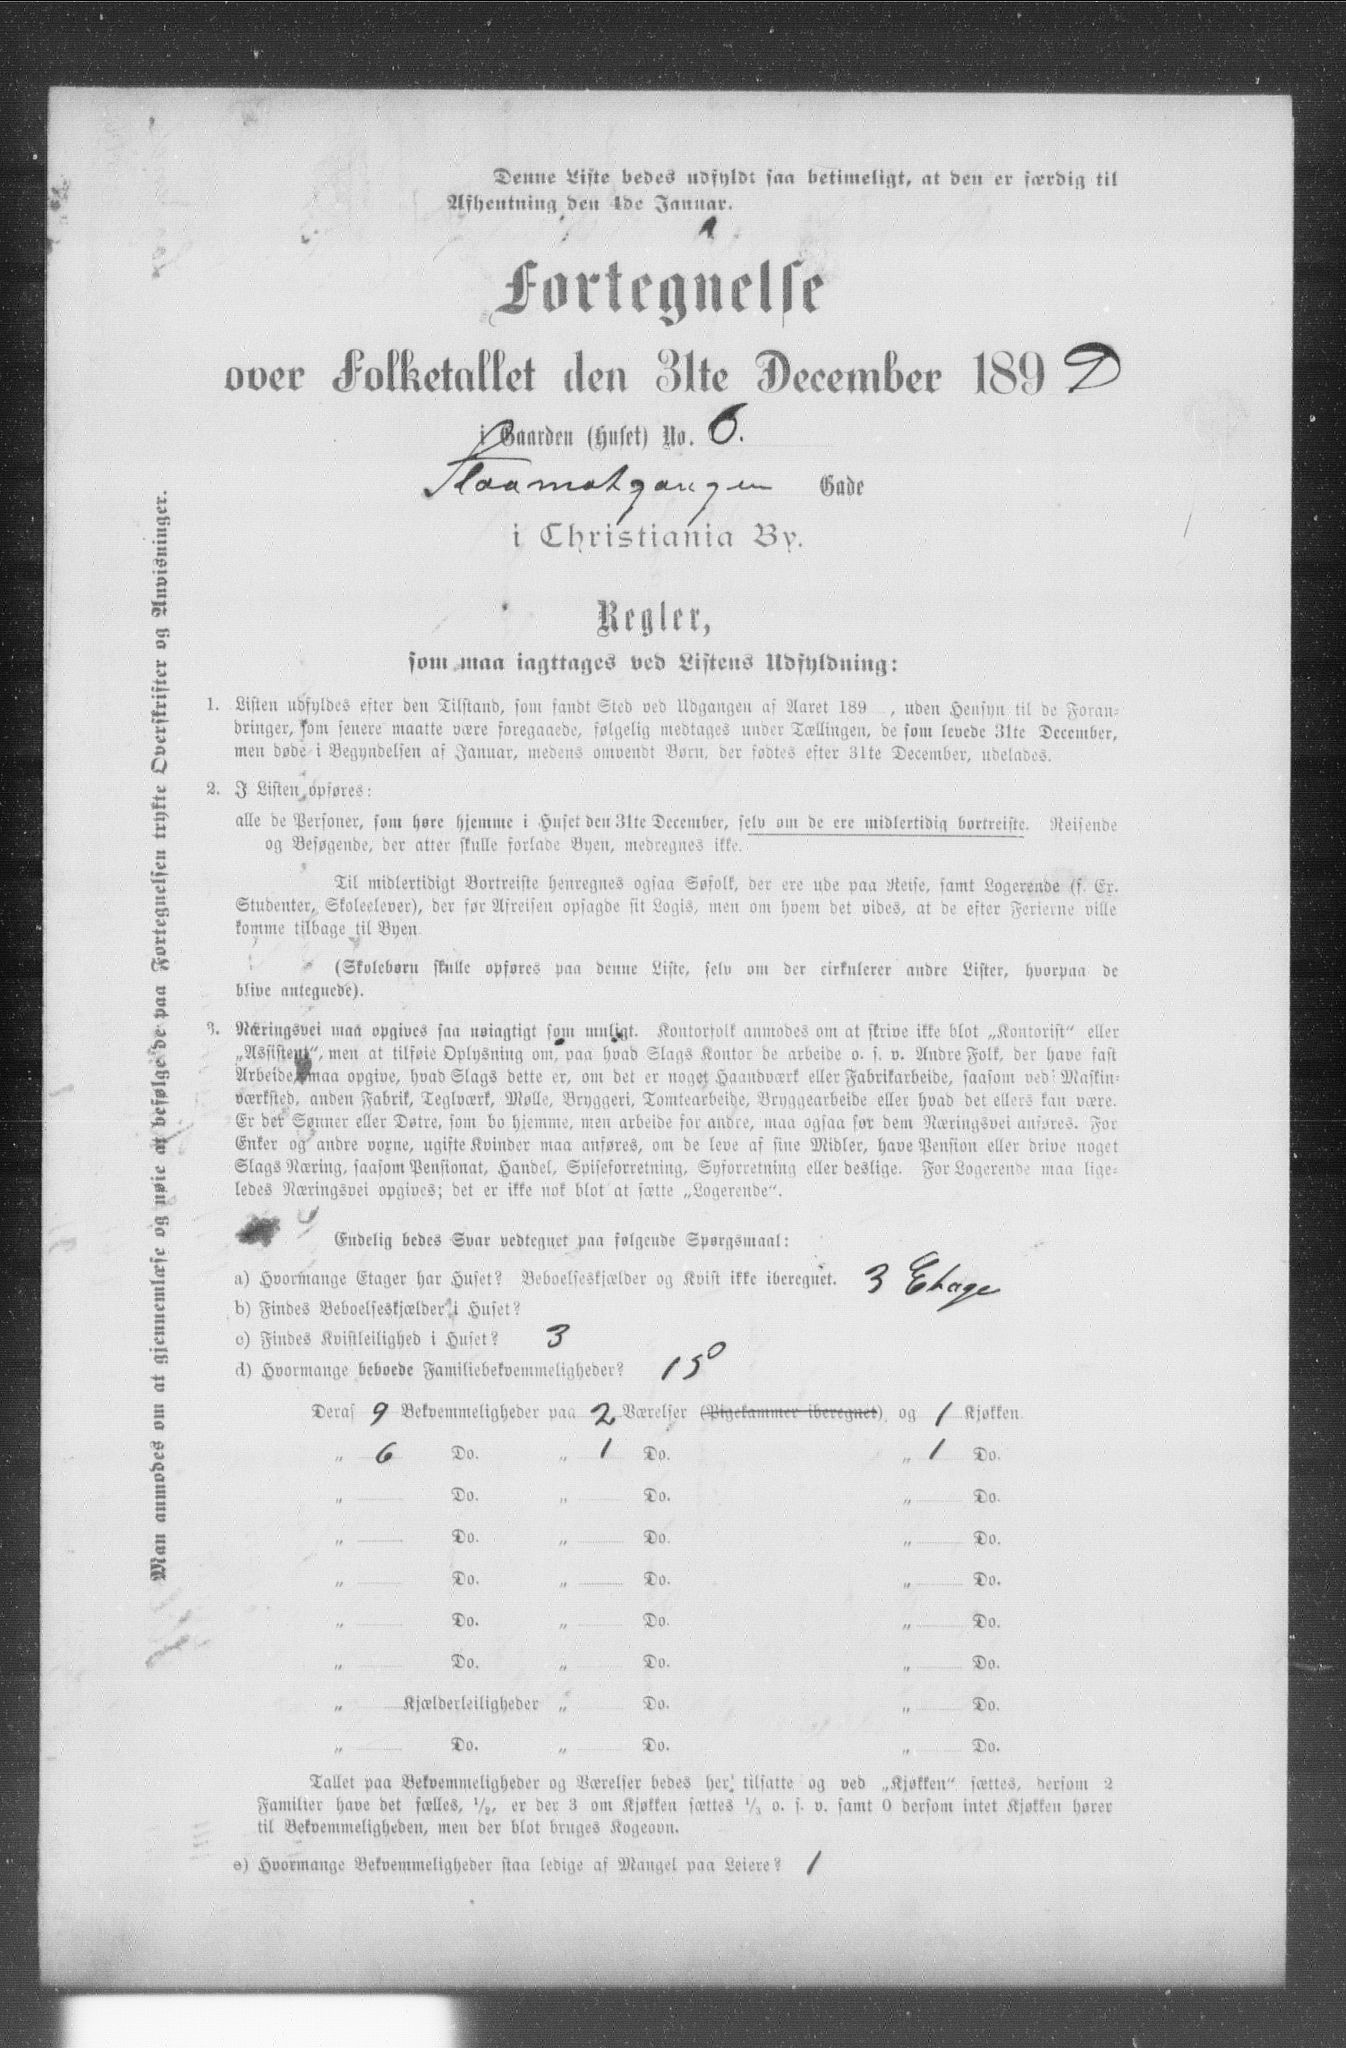 Denne Liste bedes udfyldt saa betimeligt, at den er færdig til
Afhentning den 4de Januar.
Fortegnelse
over Folketallet den 31te December 189
i Gaarden (Huset) No. 6.
Gade
i Christiania By.
Regler,
som maa iagttages ved Listens Udfyldning:
1. Listen udfyldes efter den Tilstand, som fandt Sted ved Udgangen af Aaret 189 , uden Hensyn til de Foran-
dringer, som senere maatte være foregaaede, følgelig medtages under Tællingen, de som levede 31te December,
men døde i Begyndelsen af Januar, medens omvendt Børn, der fødtes efter 31te December, udelades.
2. I Listen opføres:
alle de Personer, som høre hjemme i Huset den 31te December, selv om de ere midlertidig bortreiste. Reisende
og Besøgende, der atter skulle forlade Byen, medregnes ikke.
Til midlertidigt Bortreiste henregnes ogsaa Søfolk, der ere ude paa Reise, samt Logerende (f. Ex.
Studenter, Skoleelever), der før Afreisen opsagde sit Logis, men om hvem det vides, at de efter Ferierne ville
komme tilbage til Byen.
(Skolebørn skulle opføres paa denne Liste, selv om der cirkulerer andre Lister, hvorpaa de
blive antegnede).
3. Næringsvei maa opgives saa nøiagtigt som muligt. Kontorfolk anmodes om at skrive ikke blot „Kontorist“ eller
„Assistent“, men at tilføie Oplysning om, paa hvad Slags Kontor de arbeide o. s. v. Andre Folk, der have fast
Arbeide, maa opgive, hvad Slags dette er, om det er noget Haandværk eller Fabrikarbeide, saasom ved Maskin-
værksted, anden Fabrik, Teglværk, Mølle, Bryggeri, Tomtearbeide, Bryggearbeide eller hvad det ellers kan være.
Er der Sønner eller Døtre, som bo hjemme, men arbeide for andre, maa ogsaa for dem Næringsvei anføres. For
Enker og andre voxne, ugifte Kvinder maa anføres, om de leve af sine Midler, have Pension eller drive noget
Slags Næring, saasom Pensionat, Handel, Spiseforretning, Syforretning eller deslige. For Logerende maa lige-
ledes Næringsvei opgives; det er ikke nok blot at sætte „Logerende“.
Endelig bedes Svar vedtegnet paa følgende Spørgsmaal:
a) Hvormange Etager har Huset? Beboelseskjælder og Kvist ikke iberegnet. 3 Etage
b) Findes Beboelseskjælder i Huset?
c) Findes Kvistleilighed i Huset? 3
d) Hvormange beboede Familiebekvemmeligheder? 15
Deraf 9 Bekvemmeligheder paa 2 Værelser (Pigekammer iberegnet), og 1 Kjøkken
„ 6 Do. „ 1 Do. „ 1 Do.
„ Do. „ Do. „ Do.
„ Do. „ Do. „ Do.
„ Do. „ Do. „ Do.
„ Do. „ Do. „ Do.
„ Do. „ Do. „ Do.
„ Kjælderleiligheder „ Do. „ Do.
„ Do. „ Do. „ Do.
Tallet paa Bekvemmeligheder og Værelser bedes her tilsatte og ved „Kjøkken“ sættes, dersom 2
Familier have det fælles, 1/2, er der 3 om Kjøkken sættes 1/3 o. s. v. samt 0 dersom intet Kjøkken hører
til Bekvemmeligheden, men der blot bruges Kogeovn.
e) Hvormange Bekvemmeligheder staa ledige af Mangel paa Leiere? 1
Man anmodes om at gjennemlæse og nøie at befølge de paa Fortegnelsen trykte Overskrifter og Anvisninger.